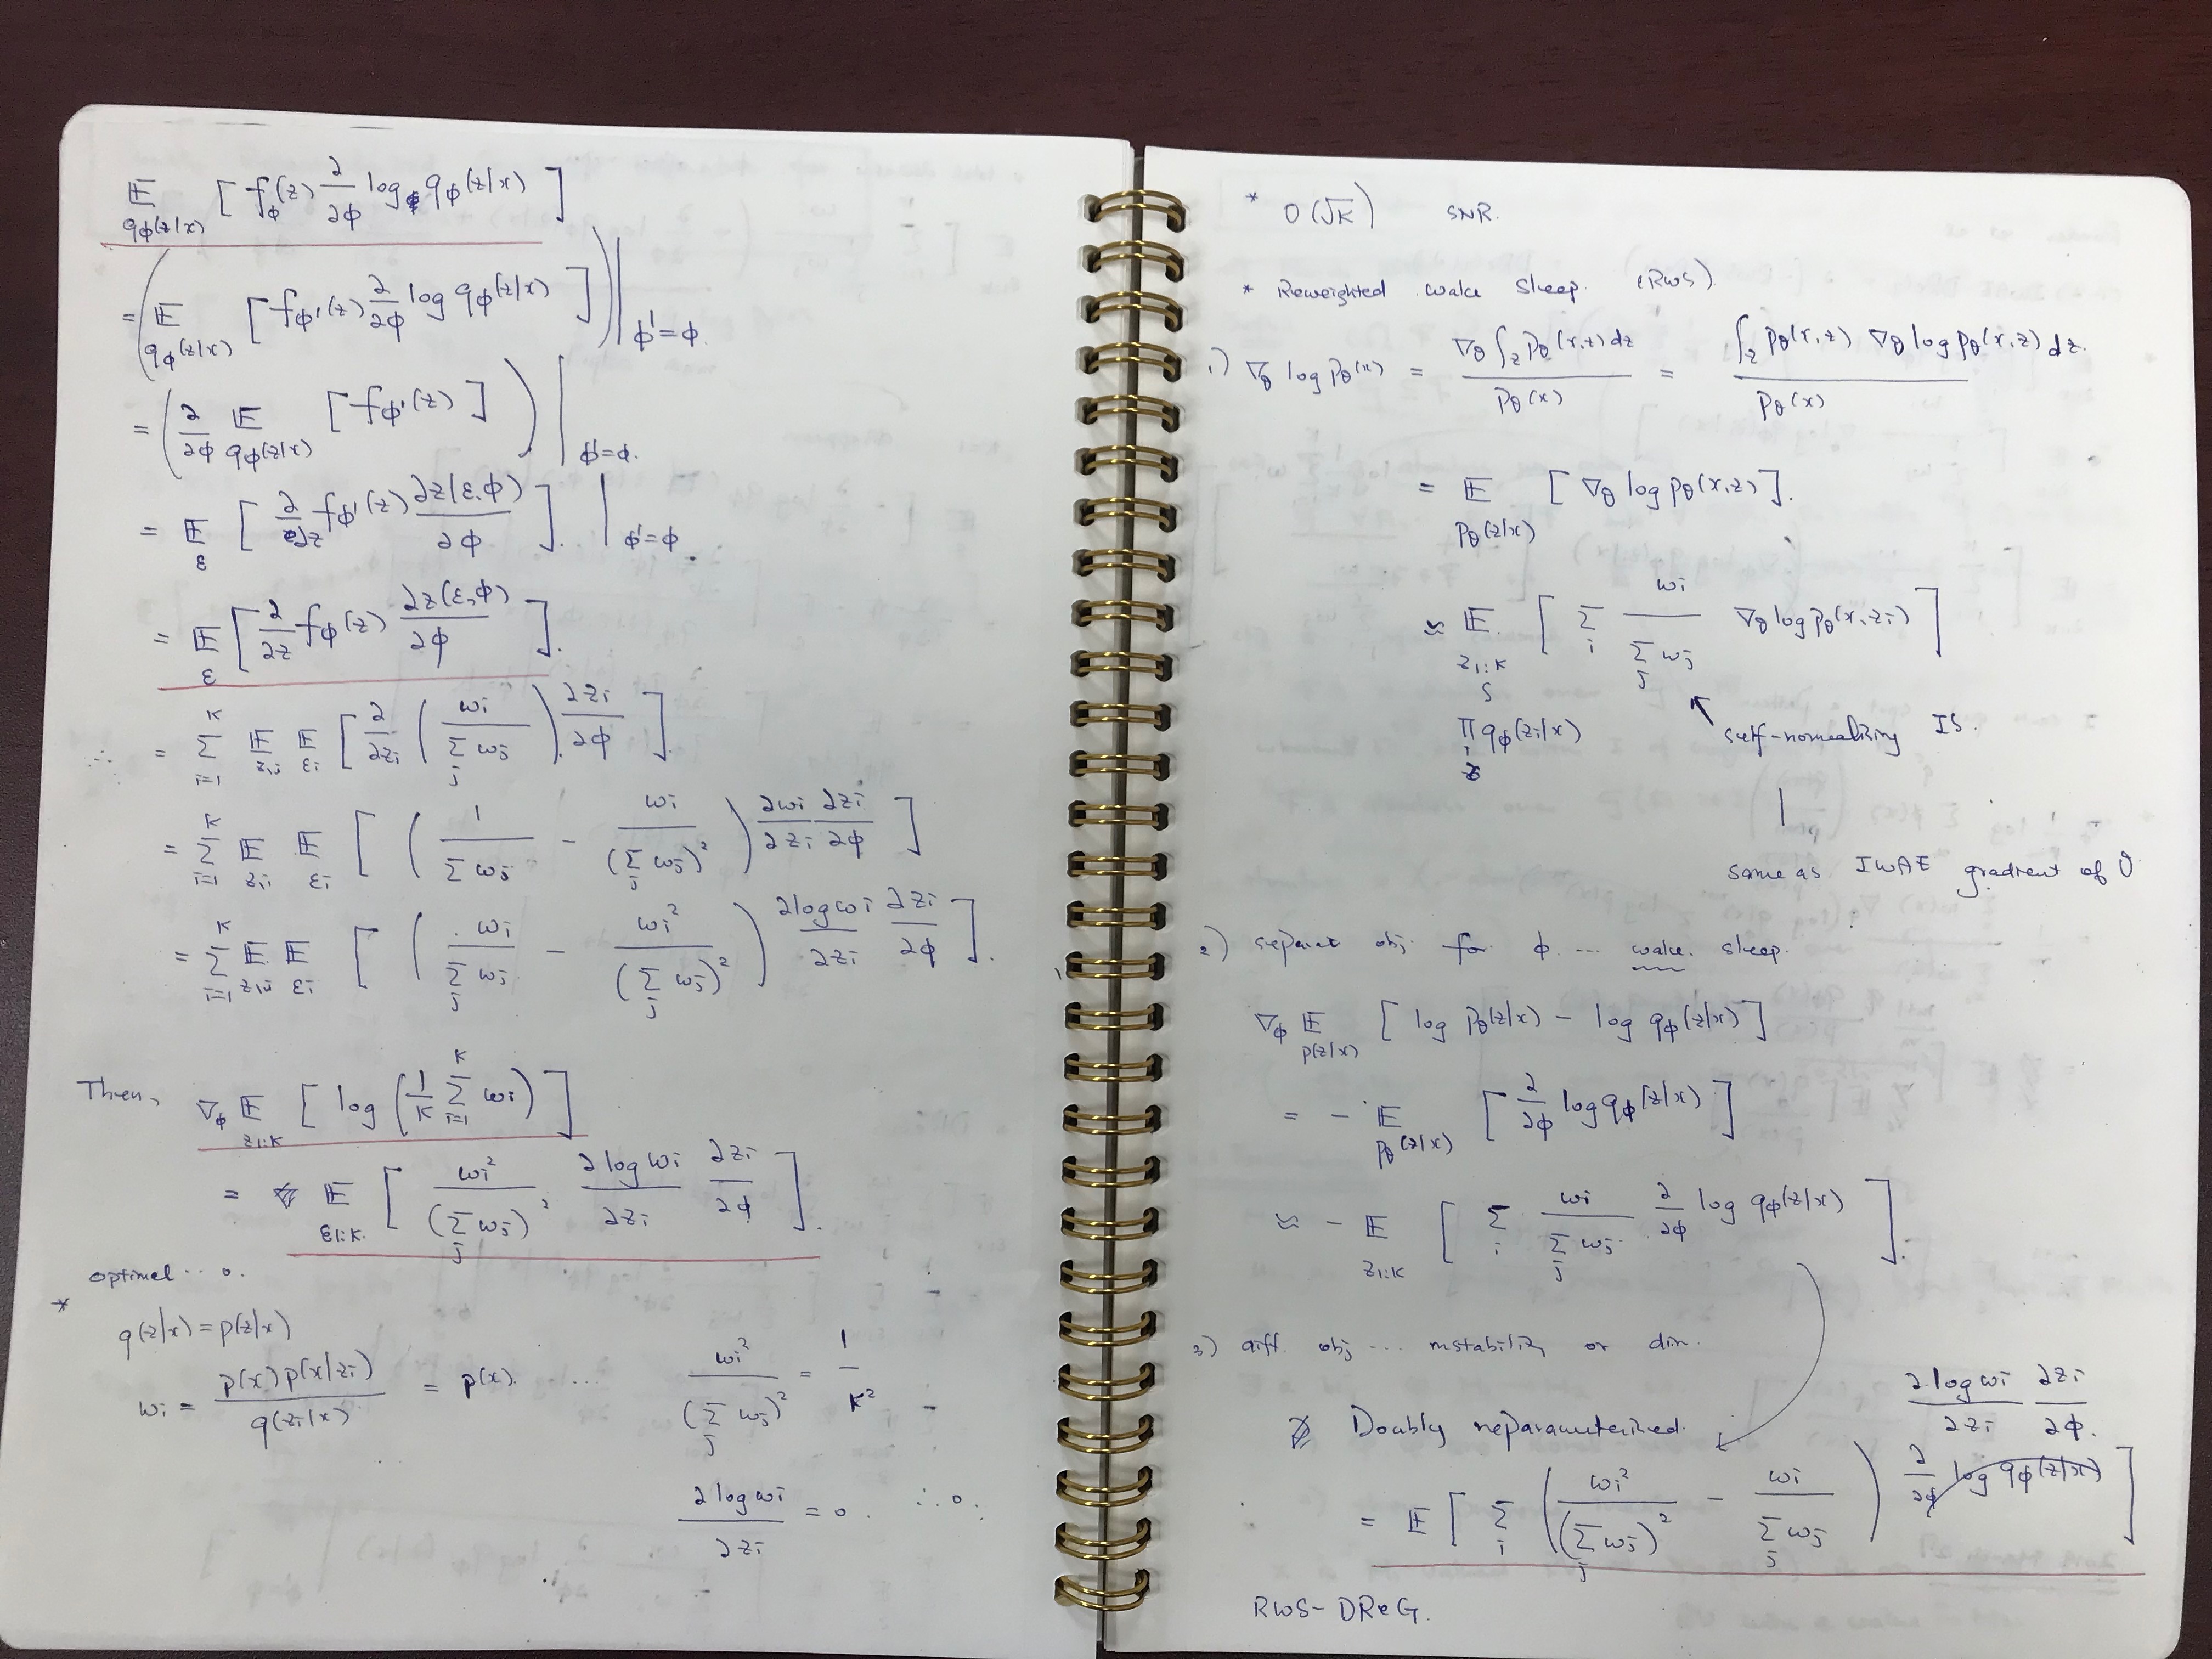 𝔼_{qφ(z|x)} [ f_φ(z) ∂/∂φ log qφ(z|x) ]
= ( 𝔼_{qφ(z|x)} [ fφ'(z) ∂/∂φ log qφ(z|x) ] ) |_{φ'=φ.}
= ( ∂/∂φ 𝔼_{qφ(z|x)} [ fφ'(z) ] ) |_{φ'=φ.}
= 𝔼_ε [ ∂/∂z fφ'(z) ∂z(ε,φ)/∂φ ]. |_{φ'=φ.}
= 𝔼_ε [ ∂/∂z fφ(z) ∂z(ε,φ)/∂φ ].
∴ = Σ_{i=1}^K 𝔼 𝔼_{εi} [ ∂/∂zi ( wi / Σ_j wj ) · ∂zi/∂φ ].
= Σ_{i=1}^K 𝔼 𝔼_{εi} [ ( 1/Σ wj − wi/(Σ_j wj)² ) ∂wi/∂zi ∂zi/∂φ ]
= Σ_{i=1}^K 𝔼 𝔼_{εi} [ ( wi/Σ_j wj − wi²/(Σ_j wj)² ) ∂log wi/∂zi ∂zi/∂φ ].
Then, ∇φ 𝔼_{z1:K} [ log ( 1/K Σ_{i=1}^K wi ) ]
= 𝔼_{ε1:K.} [ wi²/(Σ_j wj)² · ∂log wi/∂zi ∂zi/∂φ ].
optimal ·· 0.
* q(z|x) = p(z|x)
wi = p(x)p(x|zi) / q(zi|x) = p(x). ... wi²/(Σ_j wj)² = 1/K²
∂log wi/∂zi = 0. ∴ 0.
* O(√K) SNR.
* Reweighted wake sleep. (RWS)
1) ∇θ log pθ(x) = ∇θ ∫_z pθ(x,z) dz / pθ(x) = ∫_z pθ(x,z) ∇θ log pθ(x,z) dz. / pθ(x)
= 𝔼_{pθ(z|x)} [ ∇θ log pθ(x,z) ].
≈ 𝔼_{z1:K} [ Σ_i wi/Σ_j wj ∇θ log pθ(x,zi) ]
Π_i qφ(zi|x)
self-normalizing IS.
same as IWAE gradient of θ
2) separate obj. for φ. ... wake. sleep.
∇φ 𝔼_{p(z|x)} [ log pθ(z|x) − log qφ(z|x) ]
= − 𝔼_{pθ(z|x)} [ ∂/∂φ log qφ(z|x) ]
≈ − 𝔼_{z1:K} [ Σ_i wi/Σ_j wj ∂/∂φ log qφ(z|x) ].
3) diff. obj ... instability or dim.
Doubly reparameterized.
∂log wi/∂zi ∂zi/∂φ.
= 𝔼 [ Σ_i ( wi²/(Σ_j wj)² − wi/Σ_j wj ) ∂/∂φ log qφ(z|x) ]
RWS-DReG.